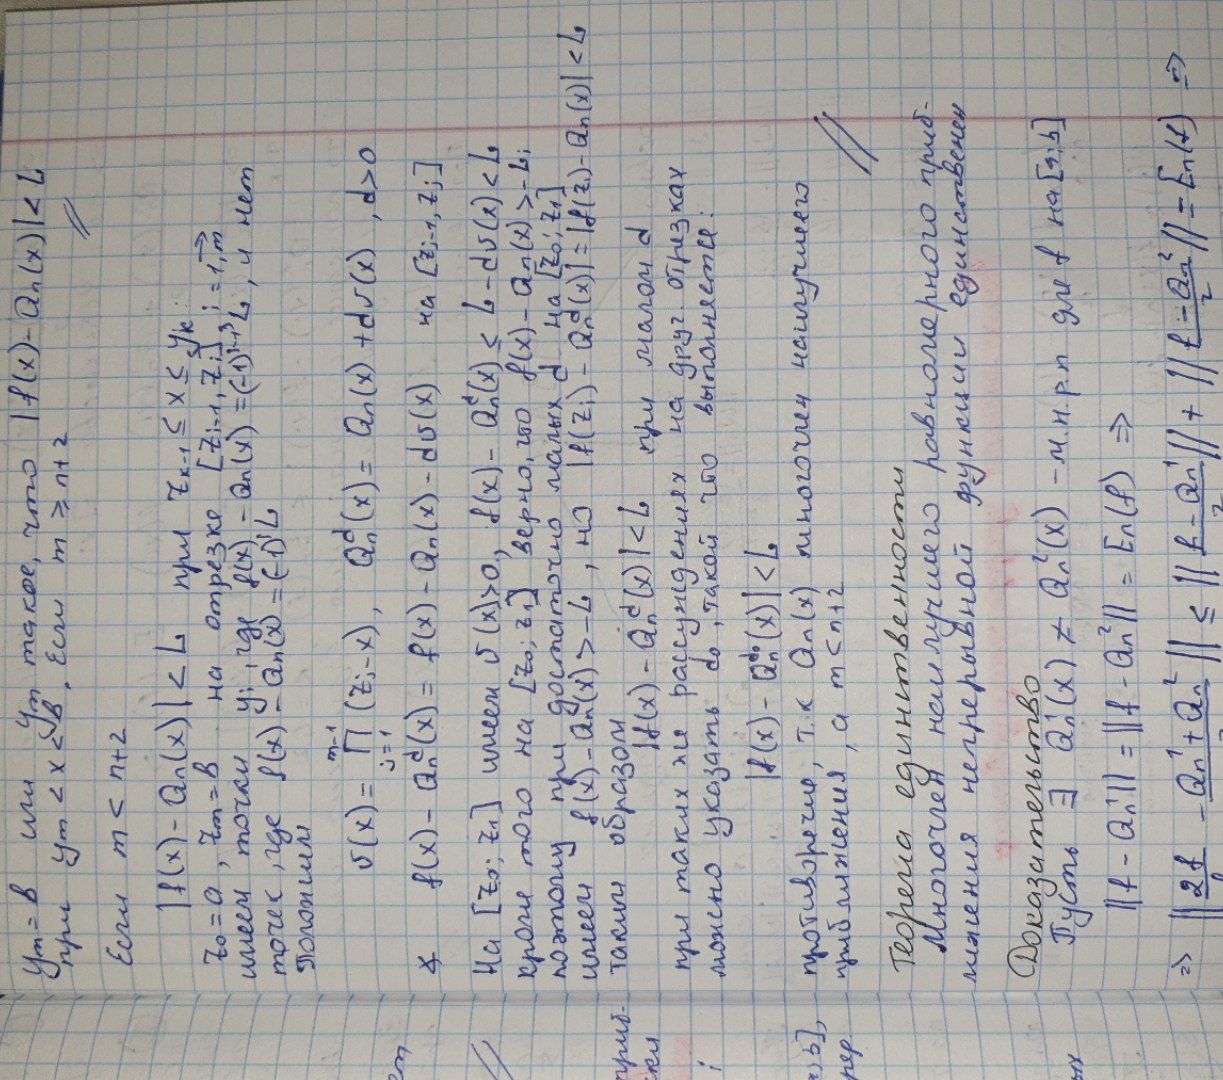 yₘ = b или yₘ такое, что |f(x) - Qₙ(x)| < L
при yₘ < x < b. Если m ≥ n+2
Если m < n+2
|f(x) - Qₙ(x)| < L при zₖ₋₁ ≤ x ≤ yₖ:
z₀ = a, zₘ = b на отрезке [zᵢ₋₁, zᵢ], i = 1,m
имеем точки yᵢ, где f(x) - Qₙ(x) = (-1)ⁱ⁻¹L, и нет
точек, где f(x) - Qₙ(x) = (-1)ⁱL
Положим
v(x) = ∏ⱼ₌₁ᵐ⁻¹ (zⱼ - x), Qₙᵈ(x) = Qₙ(x) + dv(x), d > 0
f(x) - Qₙᵈ(x) = f(x) - Qₙ(x) - dv(x) на [zⱼ₋₁, zⱼ]
На [z₀; z₁] имеем v(x) > 0, f(x) - Qₙᵈ(x) ≤ L - dv(x) < L
кроме того на [z₀; z₁] верно, что f(x) - Qₙ(x) > -L;
поэтому при достаточно малых d на [z₀; z₁]
имеем f(x) - Qₙᵈ(x) > -L, но |f(z₁) - Qₙᵈ(x)| = |f(z₁) - Qₙ(x)| < L
таким образом
|f(x) - Qₙᵈ(x)| < L при малом d
при таких же рассуждениях на друг. отрезках
можно указать d₀, такой что выполняется:
|f(x) - Qₙᵈ⁰(x)| < L
противоречие, т.к Qₙ(x) многочлен наилучшего
приближения, а m < n+2
Теорема единственности
Многочлен наилучшего равномерного приб-
лижения непрерывной функции единственен
Доказательство
Пусть ∃ Qₙ¹(x) ≠ Qₙ²(x) - м.н.р.п для f на [a; b]
||f - Qₙ¹|| = ||f - Qₙ²|| = Eₙ(f) ⇒
⇒ ||2f/2 - (Qₙ¹ + Qₙ²)/2|| ≤ ||(f - Qₙ¹)/2|| + ||(f - Qₙ²)/2|| = Eₙ(f) ⇒